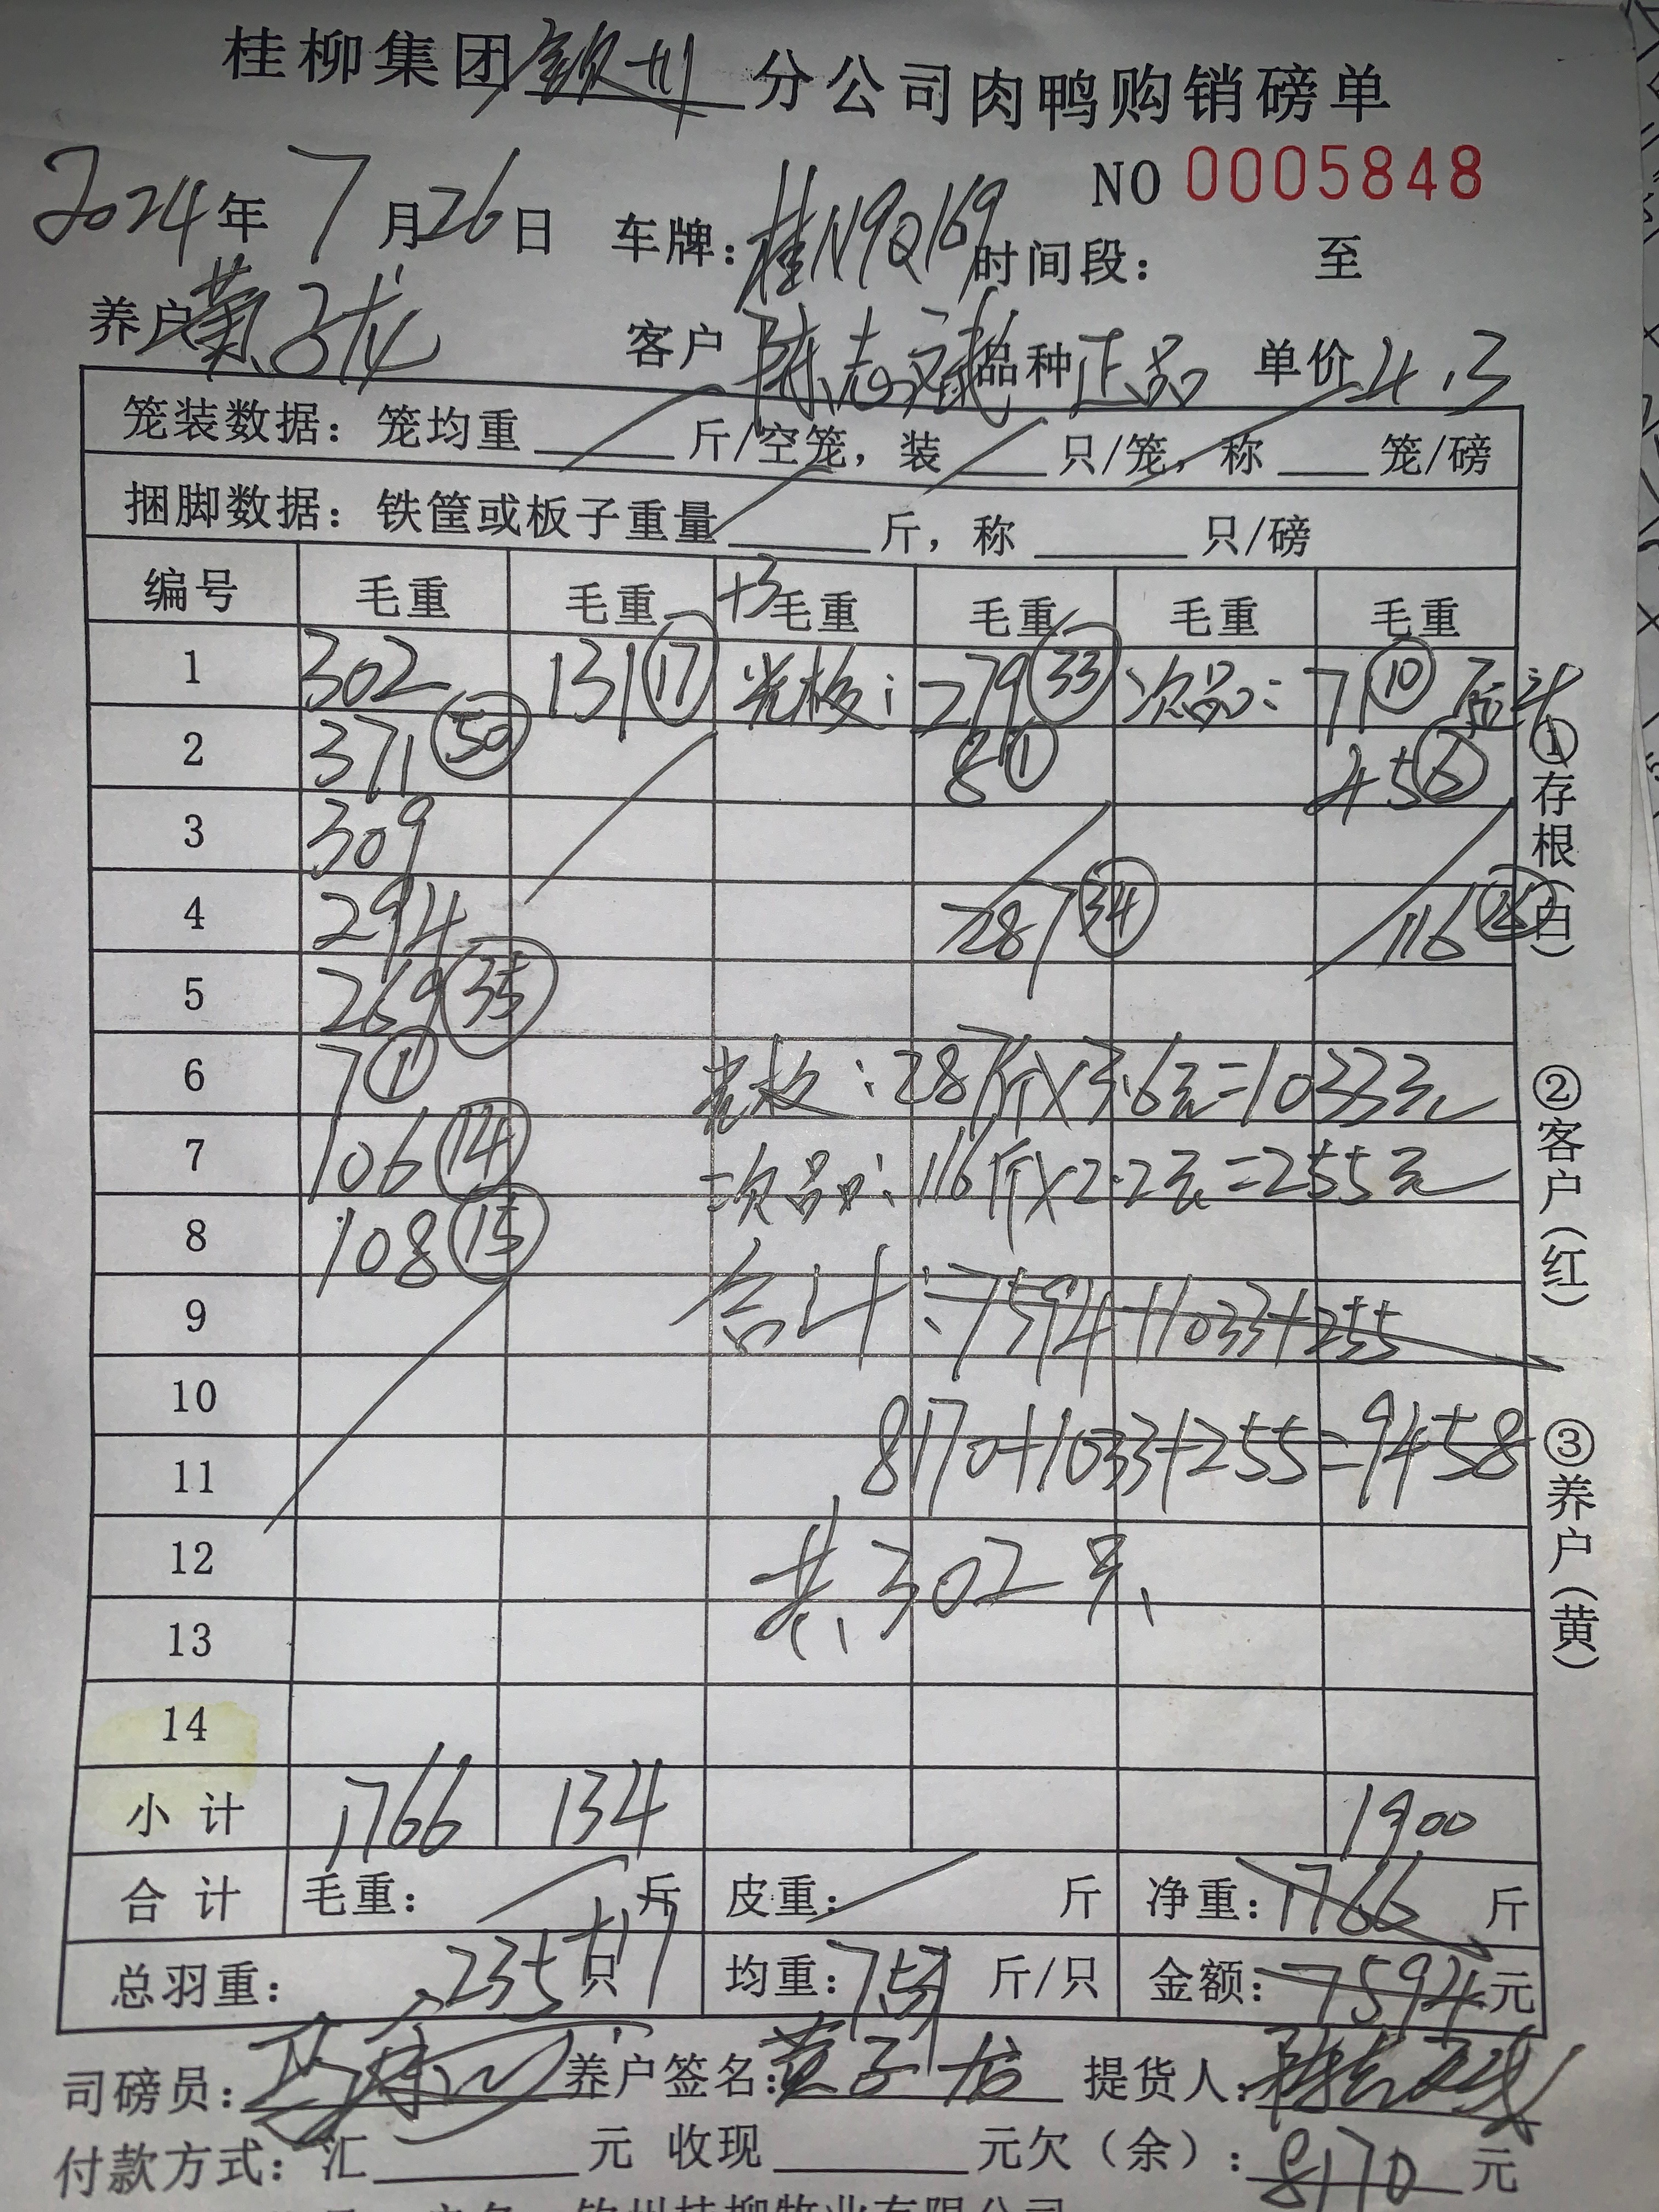 桂柳集团钦州分公司肉鸭购销磅单
NO 0005848
2024年 7月26日 车牌:桂N9Q169 时间段: 至
养户黄子龙 客户 陈志斌 品种 正品 单价 4.3
笼装数据: 笼均重 斤/空笼, 装 只/笼, 称 笼/磅
捆脚数据: 铁筐或板子重量 斤, 称 只/磅
编号 毛重 毛重 +3 毛重 毛重 毛重 毛重
1 302 131 ⑰ 光板: 279 ㉝ 次品: 71 ⑩ 后斗
2 371 ㊿ 8 ① 45 ⑥
3 309
4 294 287 ㉞ 116
5 269 ㉟
6 7 ① 光板:287斤×3.6元=1033元
7 106 ⑭ 次品:116斤×2.2元=255元
8 108 ⑮
9 合计:7594+1033+255
10
8170+1033+255=9458
11
12 共302只
13
14
小计 1766 134 1900
合计 毛重: 斤 皮重: 斤 净重:1766 斤
总羽重: 235+17只 均重:7.51 斤/只 金额:7594元
司磅员: 养户签名:黄子龙 提货人:陈志斌
付款方式: 汇 元 收现 元欠(余):8170元
钦州桂柳牧业有限公司
①存根(白)
②客户(红)
③养户(黄)